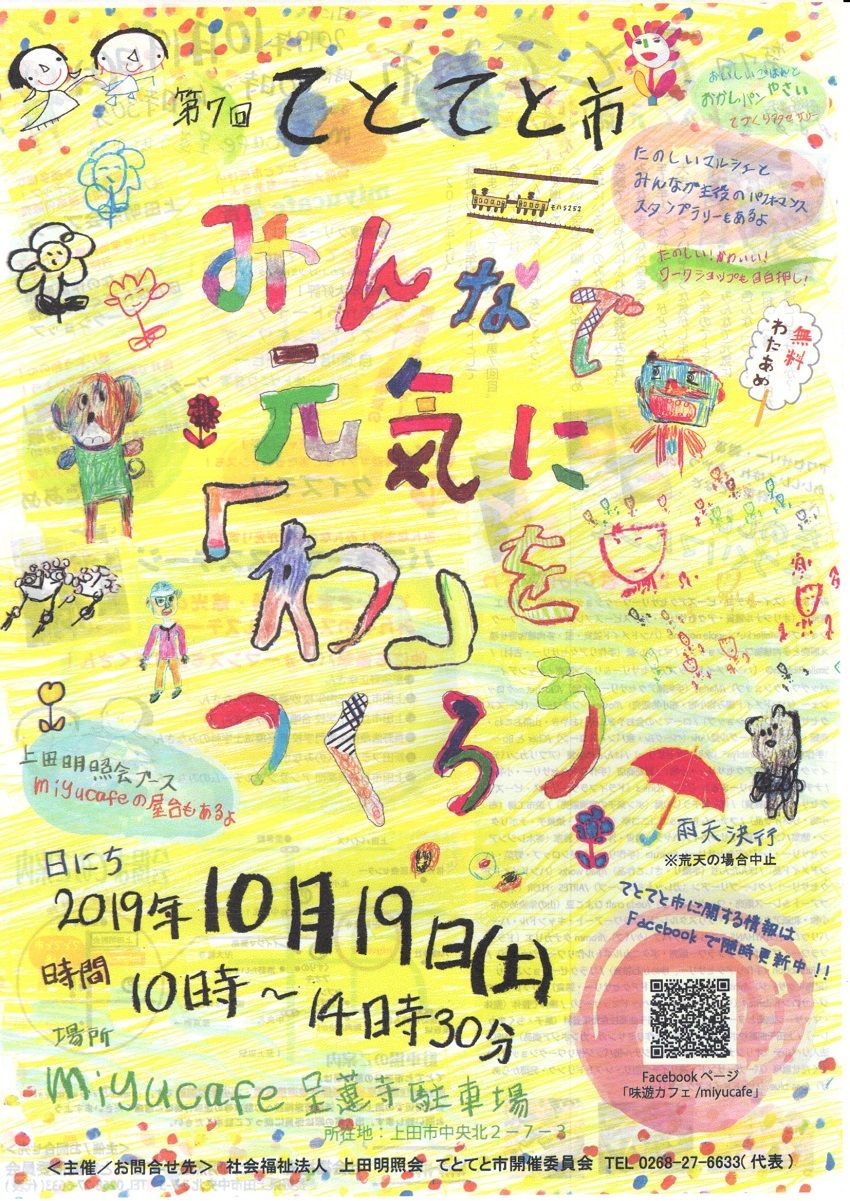 第7回 てとてと市
おいしいごはんと
おかし パン やさい
たのしいマルシェと
みんなが主役のパフォーマンス
スタンプラリーもあるよ
モハ5252
たのしい!かわいい!
ワークショップも目白押し!
みんなで
無料
わたあめ
元気に
「わ」を
つくろう
上田明照会ブース
miyucafeの屋台もあるよ
雨天決行
※荒天の場合中止
日にち
2019年10月19日(土)
時間
10時~14時30分
場所
miyucafe 呈蓮寺駐車場
所在地:上田市中央北2-7-3
てとてと市に関する情報は
Facebookで随時更新中!!
Facebookページ
「味遊カフェ/miyucafe」
<主催/お問合せ先> 社会福祉法人 上田明照会 てとてと市開催委員会 TEL 0268-27-6633(代表)